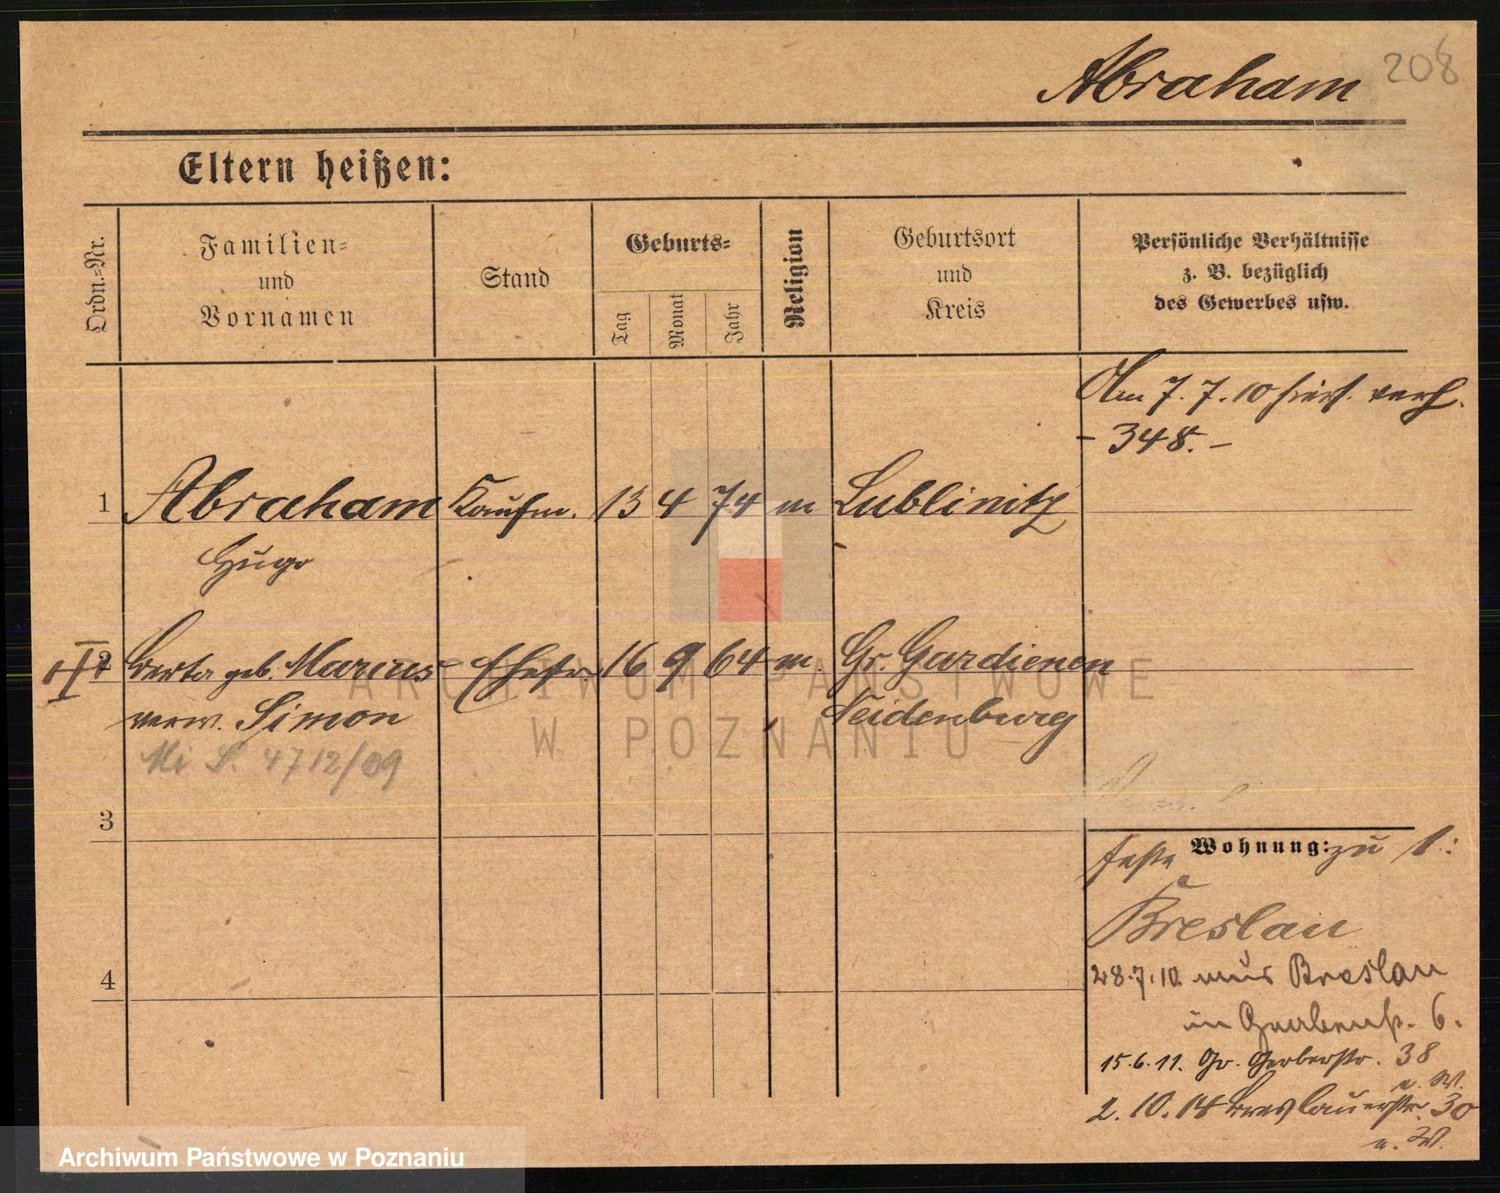 Abraham 208
Eltern heißen:
Ordn.-Nr.
Familien-
und
Vornamen
Stand
Geburts-
Tag
Monat
Jahr
Religion
Geburtsort
und
Kreis
Persönliche Verhältnisse
z. B. bezüglich
des Gewerbes usw.
Am 7.7.10 hier verh.
- 348. -
1 Abraham Kaufm. 13 4 74 m Lublinitz
Hugo
2 Berta geb. Marcus Ehefr. 16 9 64 m. Gr. Gardienen
verw. Simon Neidenburg
4712/09
ARCHIWUM PAŃSTWOWE
W POZNANIU
3
Wohnung: zu 1:
Breslau
4
28.7.10 Breslau
in Gerberstr. 6.
15.6.11. Gr. Gerberstr. 38
u. W.
2.10.14 Breslauerstr. 30
u. W.
Archiwum Państwowe w Poznaniu